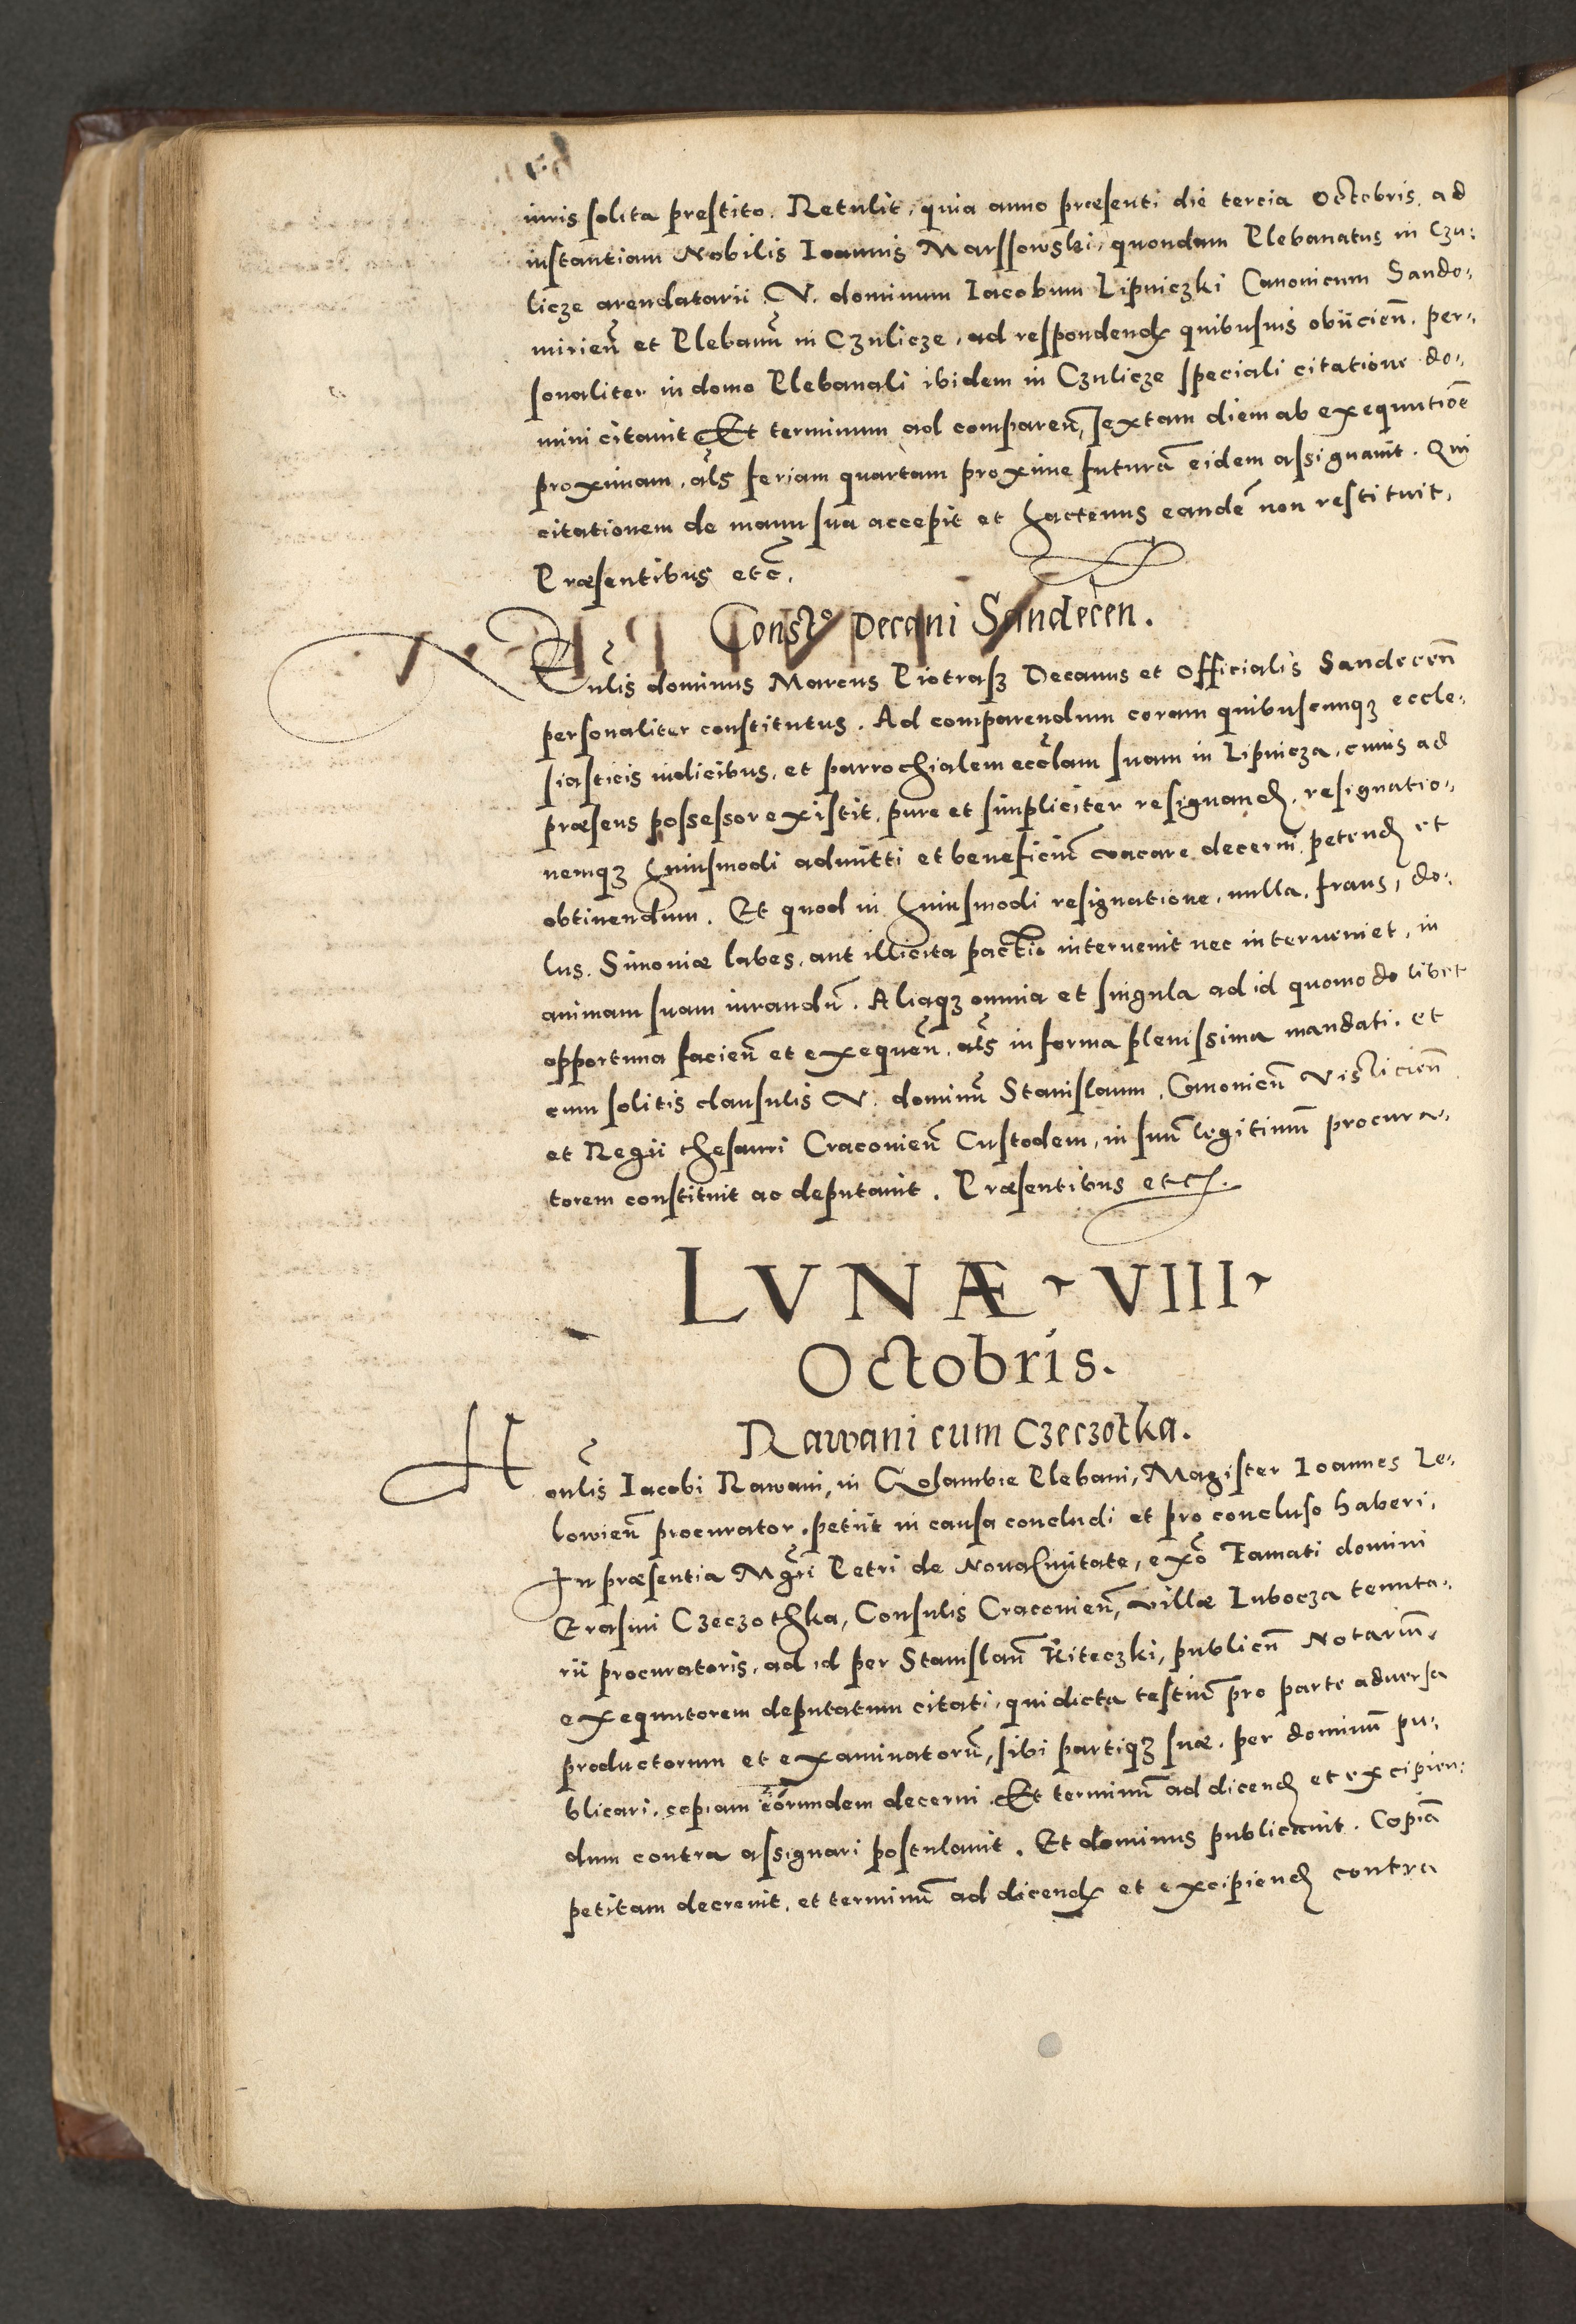 iuris solita prestito. Retulit, quia anno præsenti die tercia Octobris, ad
instantiam Nobilis Ioannis Marssowski, quondam Plebanatus in Czu-
licze arendatarii V. dominum Iacobum Lipniczki Canonicum Sando-
mirieñ et Plebanũ in Czulicze, ad respondend quibusuis obiicieñ. per-
sonaliter in domo Plebanali ibidem in Czulicze speciali citatione do-
mini citauit Et terminum ad compareñ, sextam diem ab exequutiõe
proximam, als feriam quartam proxime futurã eidem assignauit. Qui
citationem de manu sua accepit et hactenus eandẽ non restituit,
Præsentibus etc̃.
Constᵒ Decani Sandecen.
Vnlis dominus Marcus Piotrasz Decanus et Officialis Sandeceñ
personaliter constitutus. Ad comparendum coram quibuscunqꝫ eccle-
siasticis iudicibus, et parrochialem eccl̃am suam in Lipnicza, cuius ad
præsens possessor existit, pure et simpliciter resignand, resignatio-
nemqꝫ huiusmodi admitti et beneficiũ vacare decerni petend et
obtinendum. Et quod in huiusmodi resignatione, nulla, fraus, do-
lus. Simoniæ labes, aut illicita pactio interuenit nec interueniet, in
animam suam iurandũ. Aliaqꝫ omnia et singula ad id quomodo libet
opportuna facieñ et exequeñ, als in forma plenissima mandati. et
cum solitis clausulis V. dominũ Stanislaum, Canonicũ Visliciеñ
et Regii thesauri Cracovieñ Custodem, in suũ legitimũ procura-
torem constituit ac deputauit. Præsentibus etc.
LVNÆ VIII
Octobris.
Rawani cum Czeczotka.
Honlis Iacobi Rawani, in Plebani, Magister Ioannes Le-
lowieñ procurator, petiit in causa concludi et pro concluso haberi,
In præsentia Mgr̃i Petri de Noua Ciuitate, ex᷒o Famati domini
Erasmi Czeczothka, Consulis Cracovieñ, villæ Lubocza tenuta-
rii procuratoris, ad id per Stanislaũ Kiteczki, publicũ Notariũ,
exequutorem deputatum citati, qui dicta testiũ pro parte aduersa
productorum et examinatorũ, sibi partiqꝫ suæ. per dominũ pu-
blicari, copiam eorundem decerni Et terminũ ad dicend et excipien-
dum contra assignari postulauit. Et dominus publicauit. Copiã
petitam decreuit, et terminũ ad dicend et excipiend contra